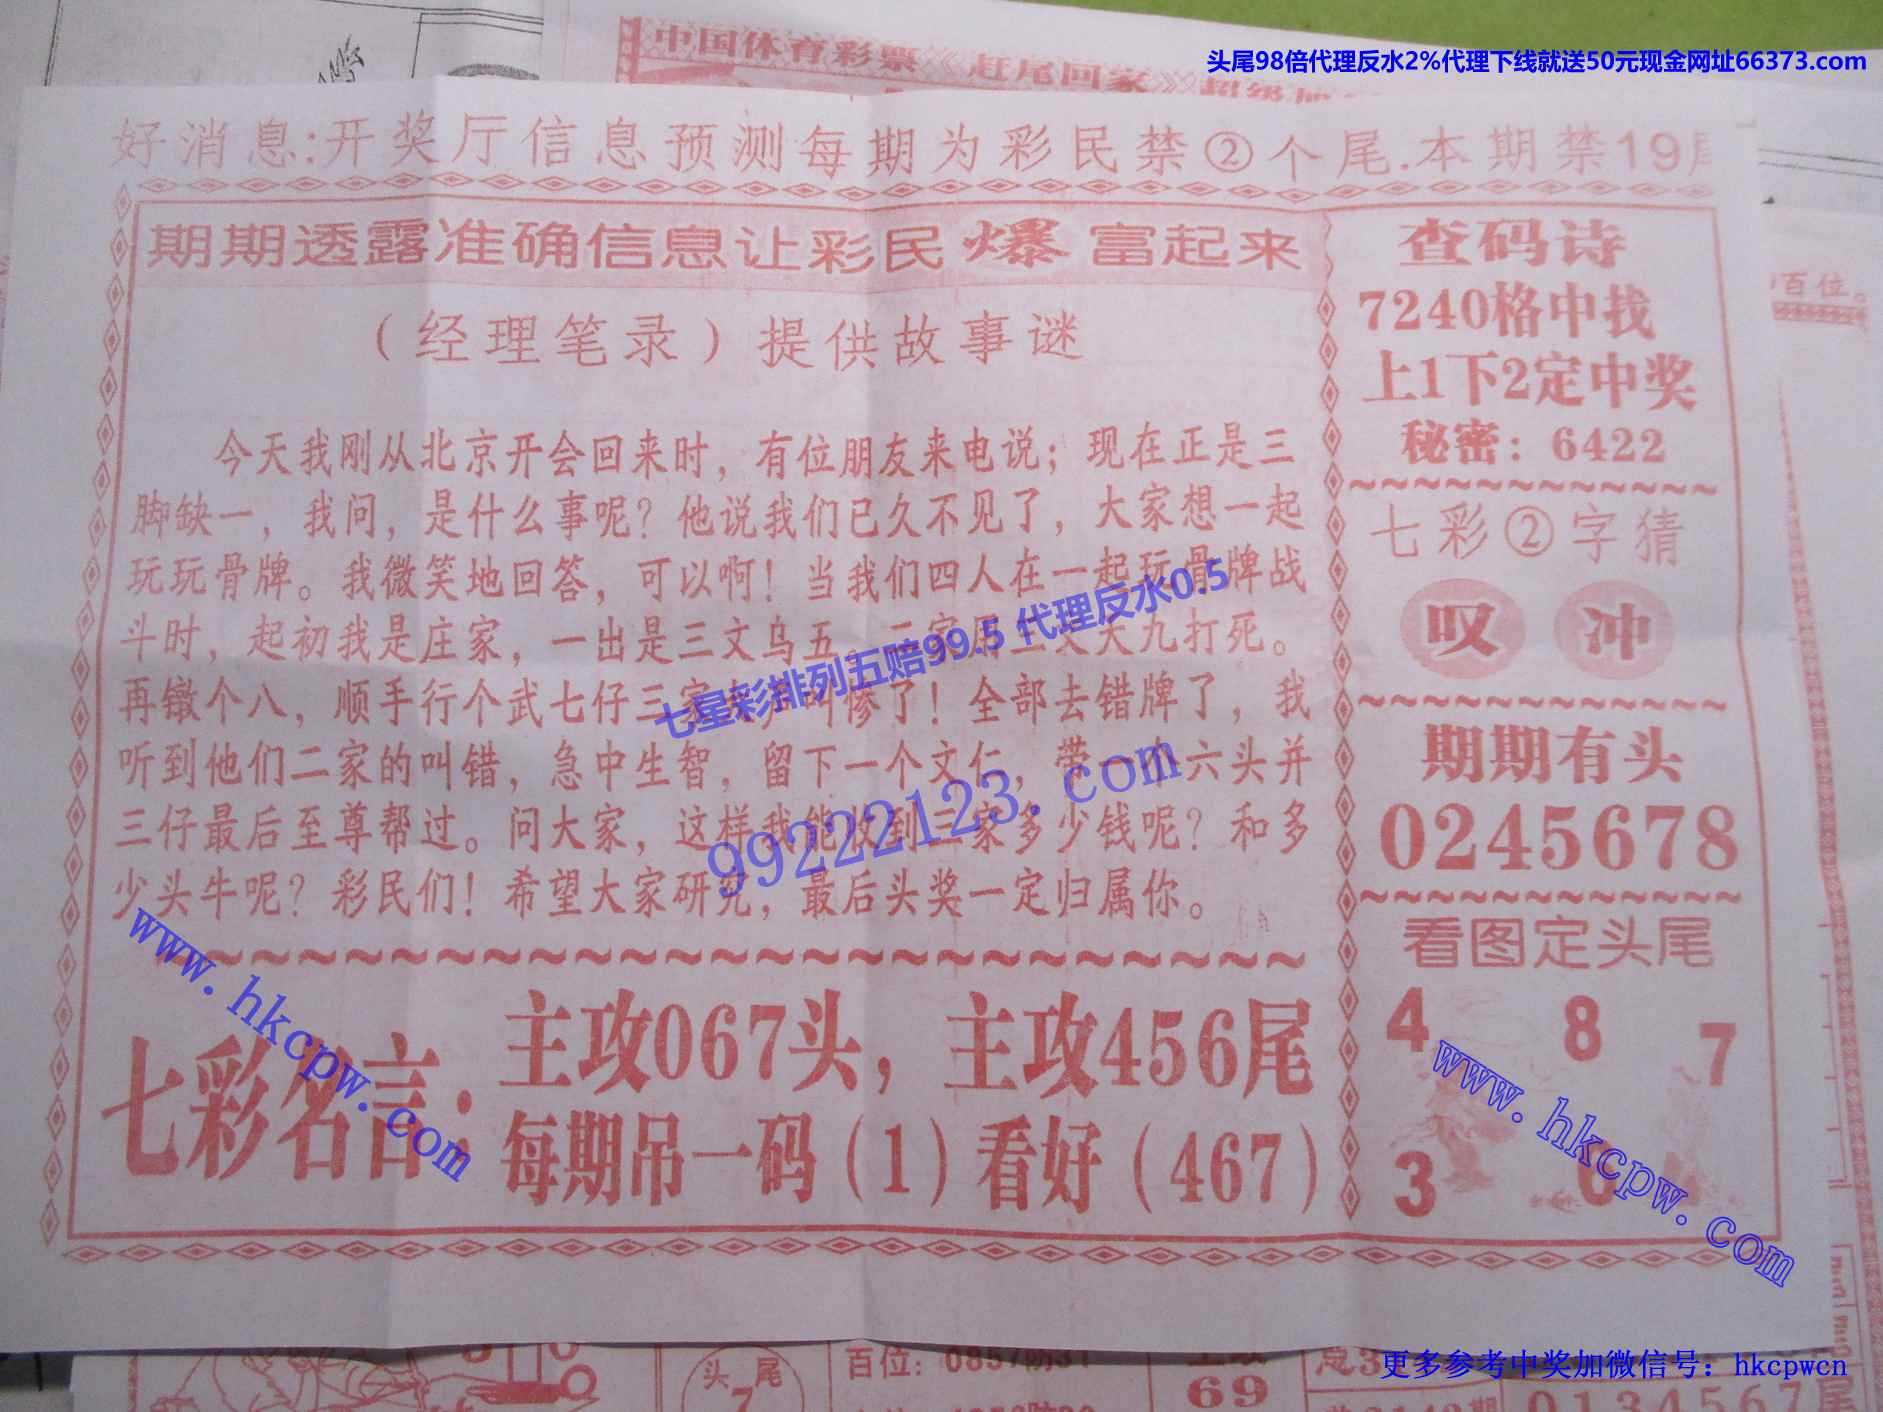 中国体育彩票 赶尾回家
头尾98倍代理反水2%代理下线就送50元现金网址66373.com
好消息:开奖厅信息预测每期为彩民禁②个尾.本期禁19尾
期期透露准确信息让彩民爆富起来
（经理笔录）提供故事谜
今天我刚从北京开会回来时，有位朋友来电说；现在正是三
脚缺一，我问，是什么事呢？他说我们已久不见了，大家想一起
玩玩骨牌。我微笑地回答，可以啊！当我们四人在一起玩骨牌战
斗时，起初我是庄家，一出是三文乌五。三家用天九打死。
再镦个八，顺手行个武七仔三家叫惨了！全部去错牌了，我
听到他们二家的叫错，急中生智，留下一个文仁，带一个六头并
三仔最后至尊帮过。问大家，这样我能收到三家多少钱呢？和多
少头牛呢？彩民们！希望大家研究，最后头奖一定归属你。
七彩名言：
主攻067头，主攻456尾
每期吊一码（1）看好（467）
查码诗
7240格中找
上1下2定中奖
秘密：6422
七彩②字猜
叹 冲
期期有头
0245678
看图定头尾
4 8 7
3 6
百位。
七星彩排列五赔99.5 代理反水0.5
99222123.com
www.hkcpw.com
www.hkcpw.com
头 尾
7
百位：0857防31
69
0134567尾
更多参考中奖加微信号：hkcpwcn